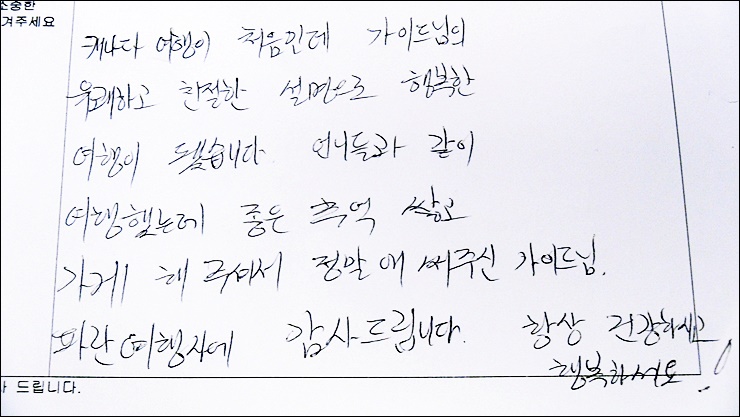 소중한
겨주세요
캐나다 여행이 처음인데 가이드님의
유쾌하고 친절한 설명으로 행복한
여행이 되었습니다. 언니들과 같이
여행했는데 좋은 추억 쌓고
가게 해 주셔서 정말 애 써주신 가이드님.
파란여행사에 감사드립니다. 항상 건강하시고
행복하세요!
드립니다.